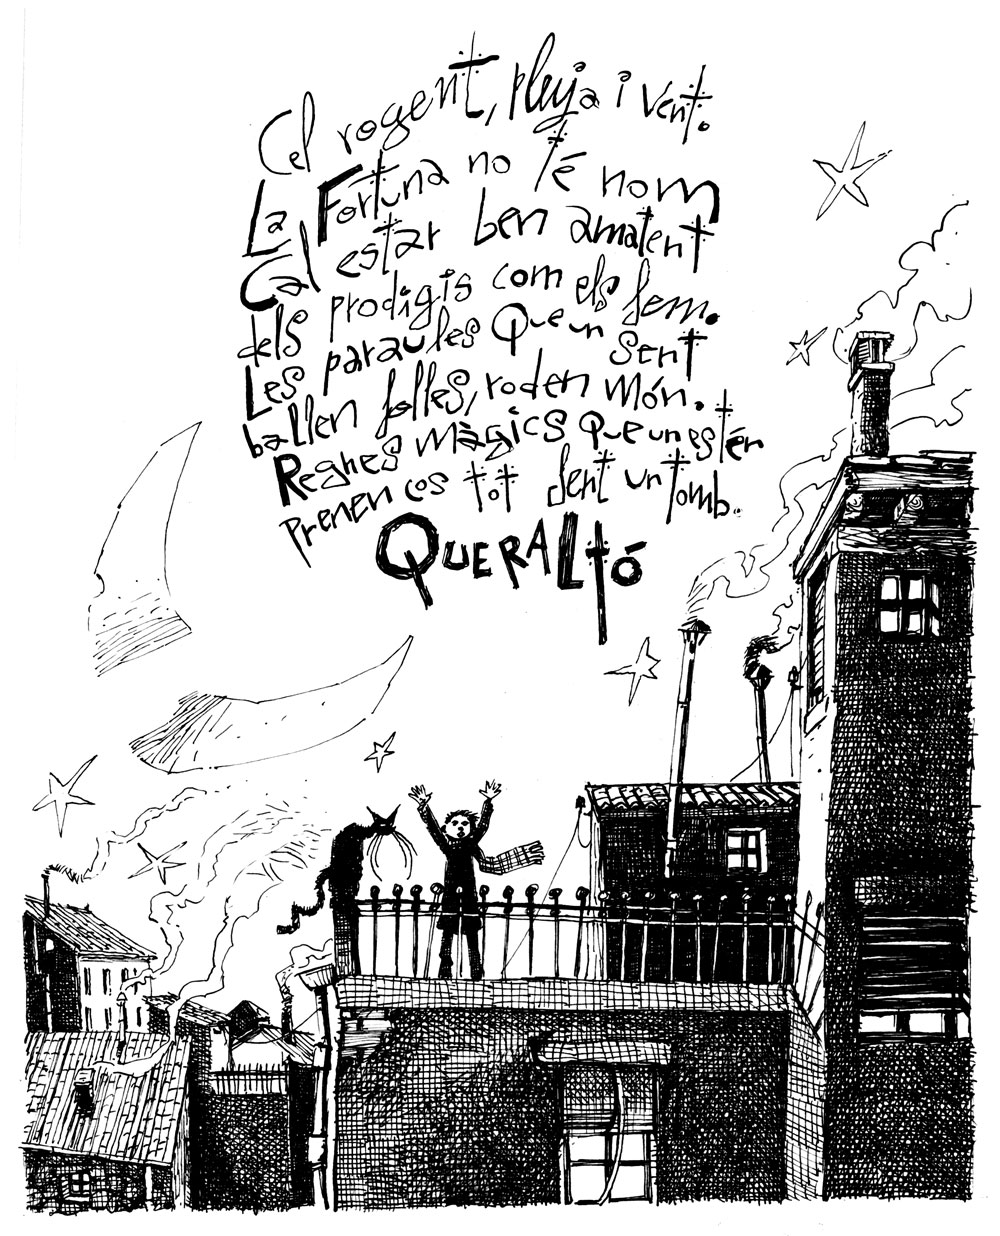 Cel rogent, pluja i vent.
La Fortuna no té nom
Cal estar ben amatent
dels prodigis com els fem.
Les paraules Que un sent
ballen folles, roden món.
Regnes màgics que un estén
prenen cos tot fent un tomb.
QUERALtó